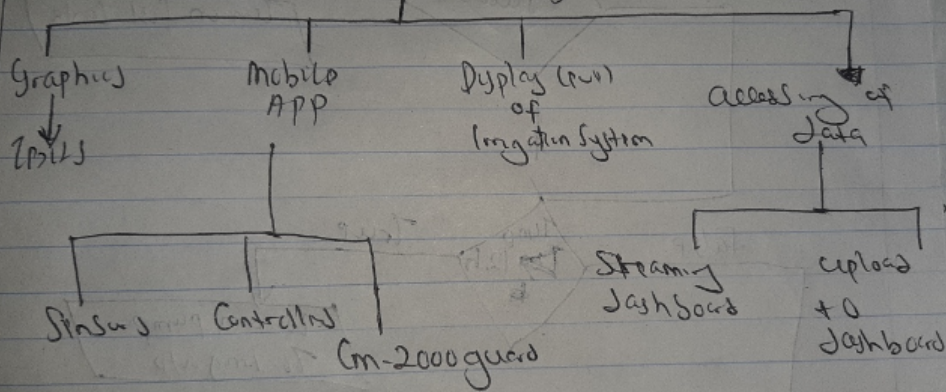 Graphics
Mobile
APP
Dysplay (run)
of
Irrigation System
accessing of
data
Sensors
Controllers
Cm-2000 guard
Streaming
dashboard
upload
to
dashboard